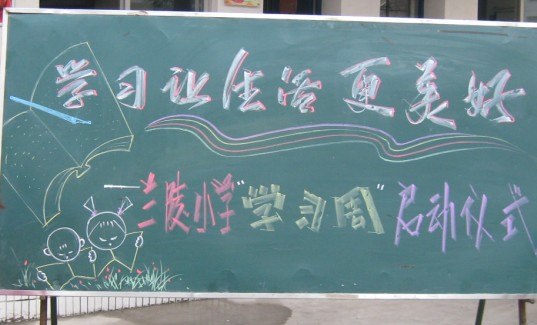 学习让生活更美好
——兰陵小学“学习周”启动仪式